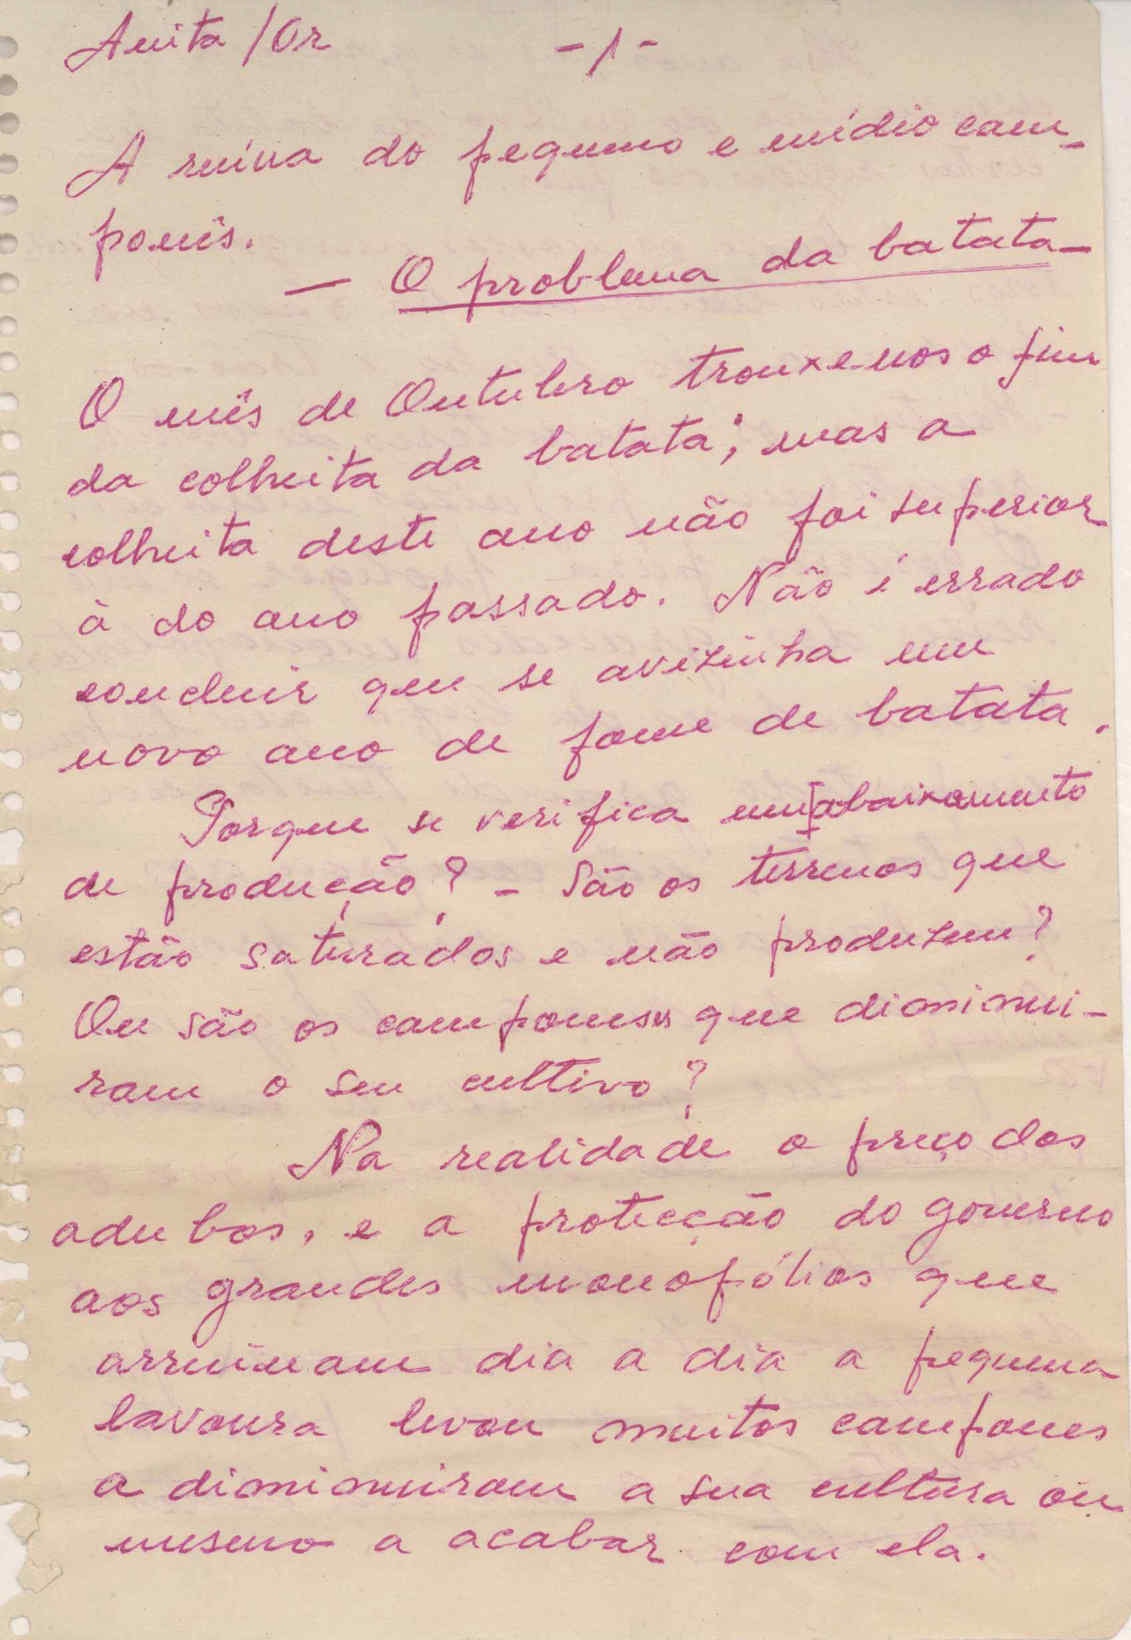 Anita / Or -1-
A ruína do pequeno e médio cam-
ponês.
— O problema da batata —
O mês de Outubro trouxe-nos o fim
da colheita da batata; mas a
colheita deste ano não foi superior
à do ano passado. Não é errado
concluir que se avizinha um
novo ano de fome de batata.
Porque se verifica um abaixamento
de produção? - São os terrenos que
estão saturados e não produzem?
Ou são os camponeses que diminui-
ram o seu cultivo?
Na realidade o preço dos
adubos, e a protecção do governo
aos grandes monopólios que
arruinam dia a dia a pequena
lavoura levou muitos campones
a diminuiram a sua cultura ou
mesmo a acabar com ela.